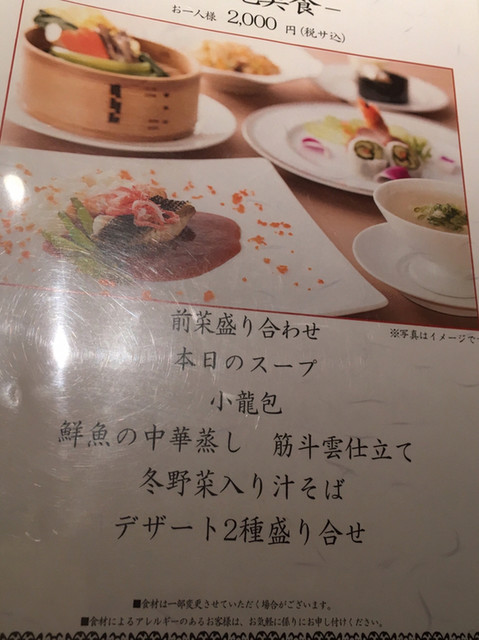 美食－
お一人様 2,000 円(税サ込)
※写真はイメージで
前菜盛り合わせ
本日のスープ
小龍包
鮮魚の中華蒸し 筋斗雲仕立て
冬野菜入り汁そば
デザート2種盛り合せ
■食材は一部変更させていただく場合がございます。
■食材によるアレルギーのあるお客様は、お気軽に係りにお申し付けください。